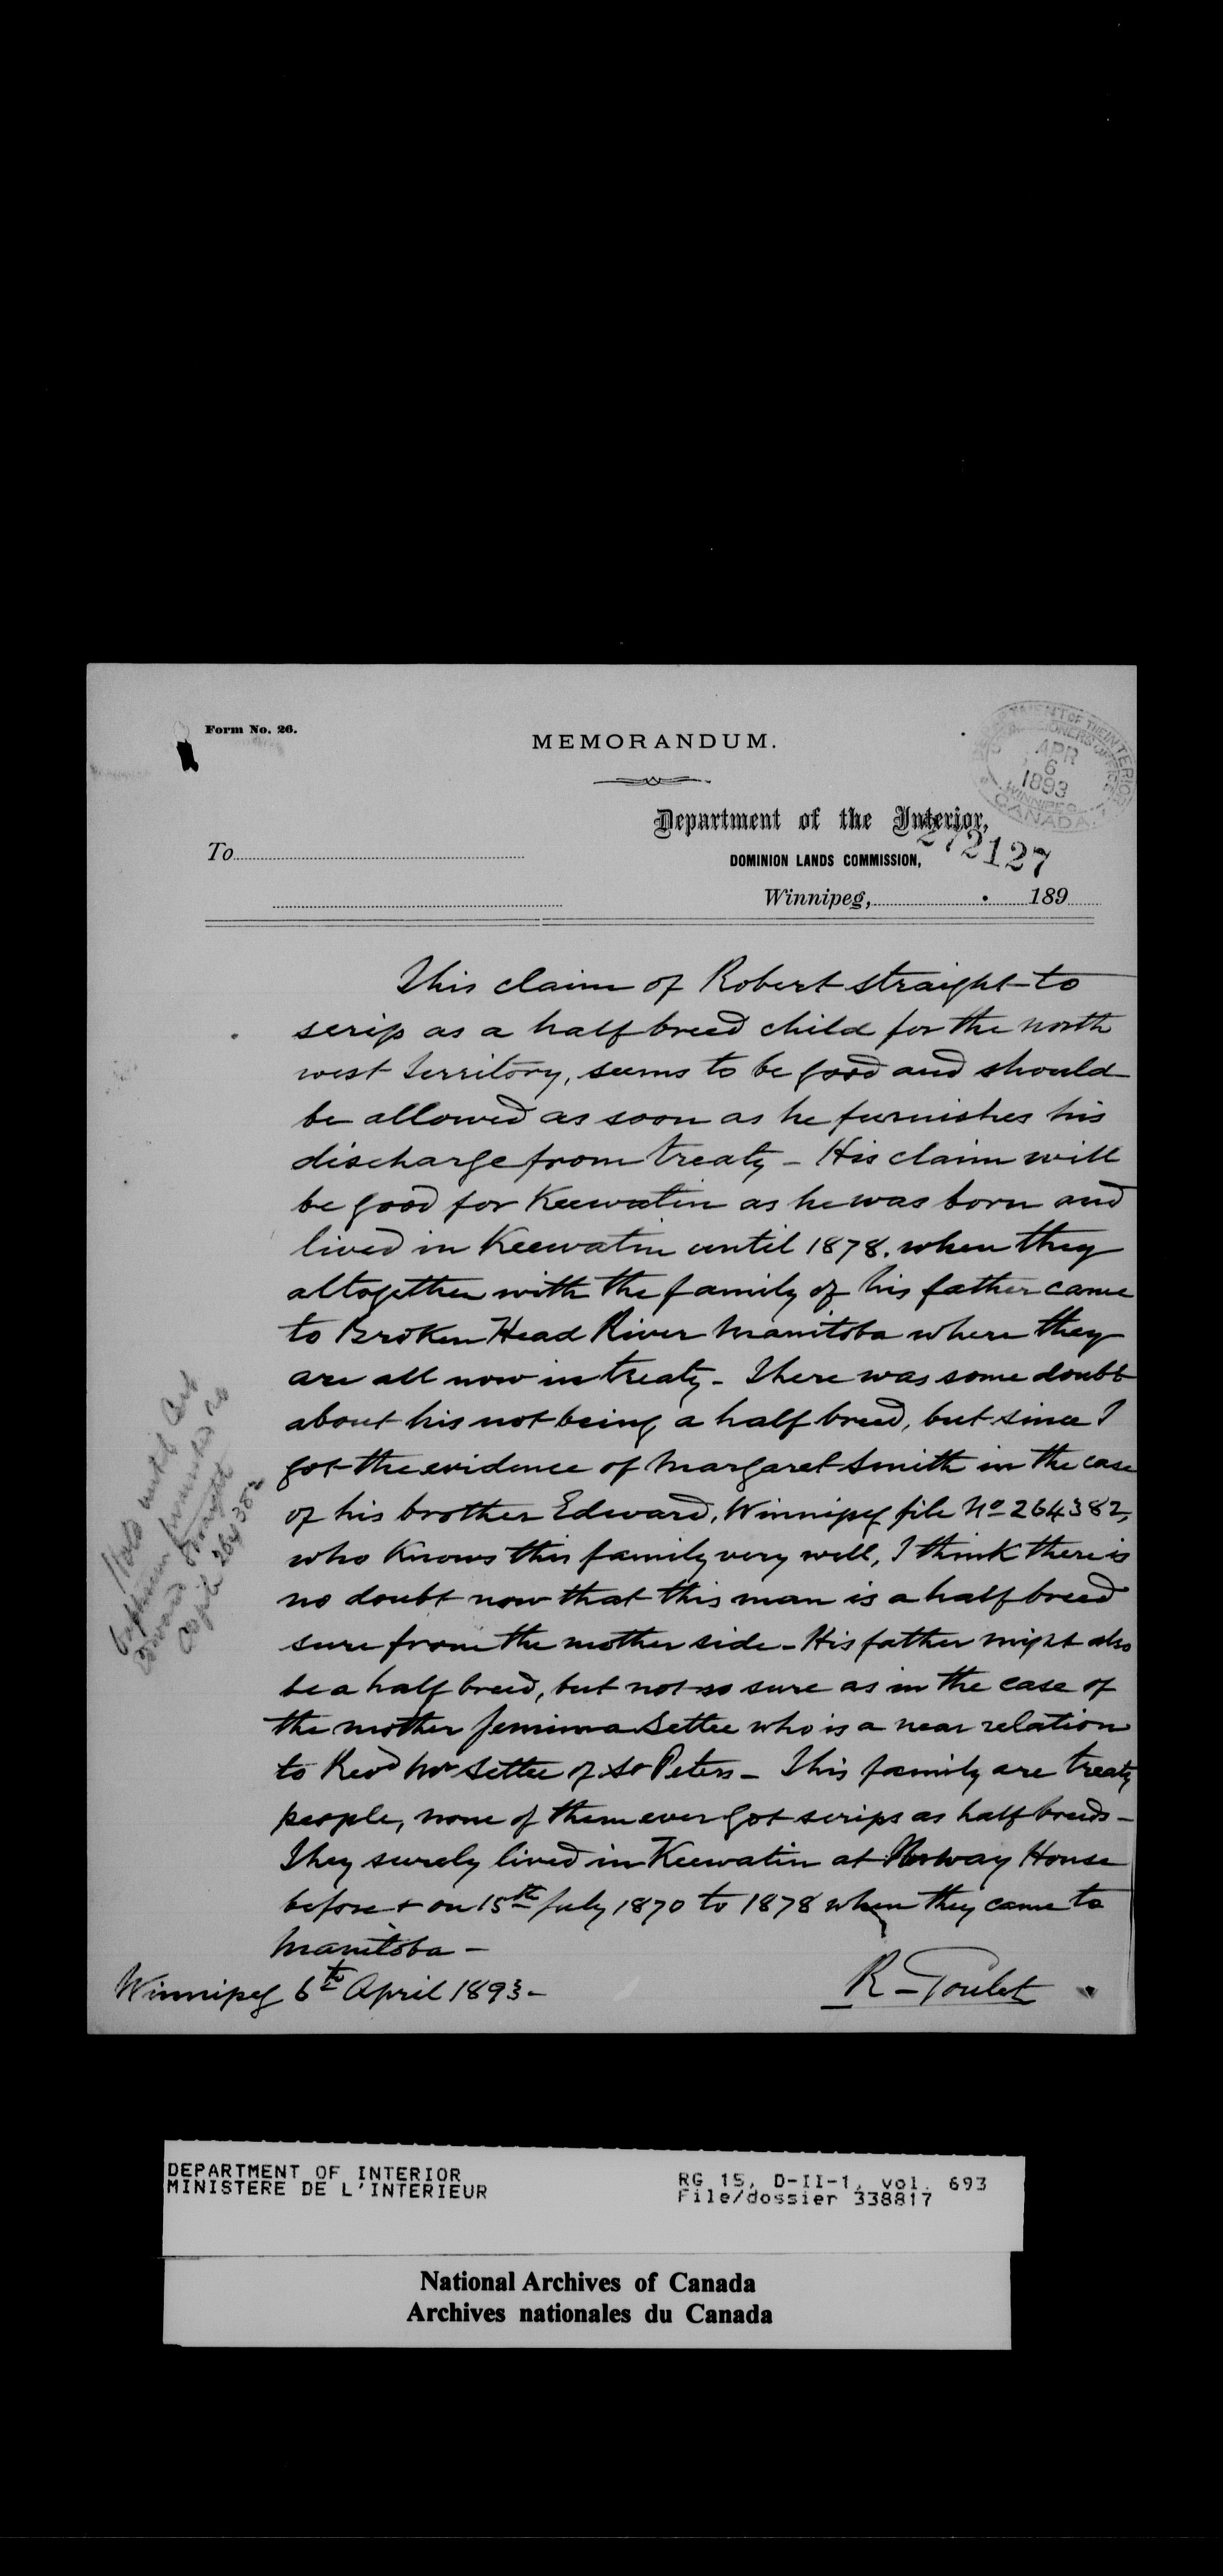 Form No. 26.
MEMORANDUM.
DEPARTMENT OF THE INTERIOR
COMMISSIONERS OFFICE
APR
6
1893
WINNIPEG
CANADA
Department of the Interior,
272127
To
DOMINION LANDS COMMISSION,
Winnipeg, 189
This claim of Robert Straight to
scrip as a half breed child for the north
west territory, seems to be good and should
be allowed as soon as he furnishes his
discharge from treaty - His claim will
be good for Keewatin as he was born and
lived in Keewatin until 1878. when they
altogether with the family of his father came
to Broken Head River Manitoba where they
are all now in treaty - There was some doubt
about his not being a half breed, but since I
got the evidence of Margaret Smith in the case
of his brother Edward, Winnipeg file No 264382,
who knows this family very well, I think there is
no doubt now that this man is a half breed
sure from the mother side - His father might also
be a half breed, but not so sure as in the case of
the mother Jemima Settee who is a near relation
to Revd Mr Settee of St Peters - This family are treaty
people, none of them ever got scrips as half breeds -
They surely lived in Keewatin at Norway House
before + on 15th July 1870 to 1878 when they came to
Manitoba -
Winnipeg 6th April 1893 -
R - Goulet
Hold until
baptism furnished
Edward Straight
file 264382
DEPARTMENT OF INTERIOR
MINISTERE DE L'INTERIEUR
RG 15, D-II-1, vol. 693
File/dossier 338817
National Archives of Canada
Archives nationales du Canada